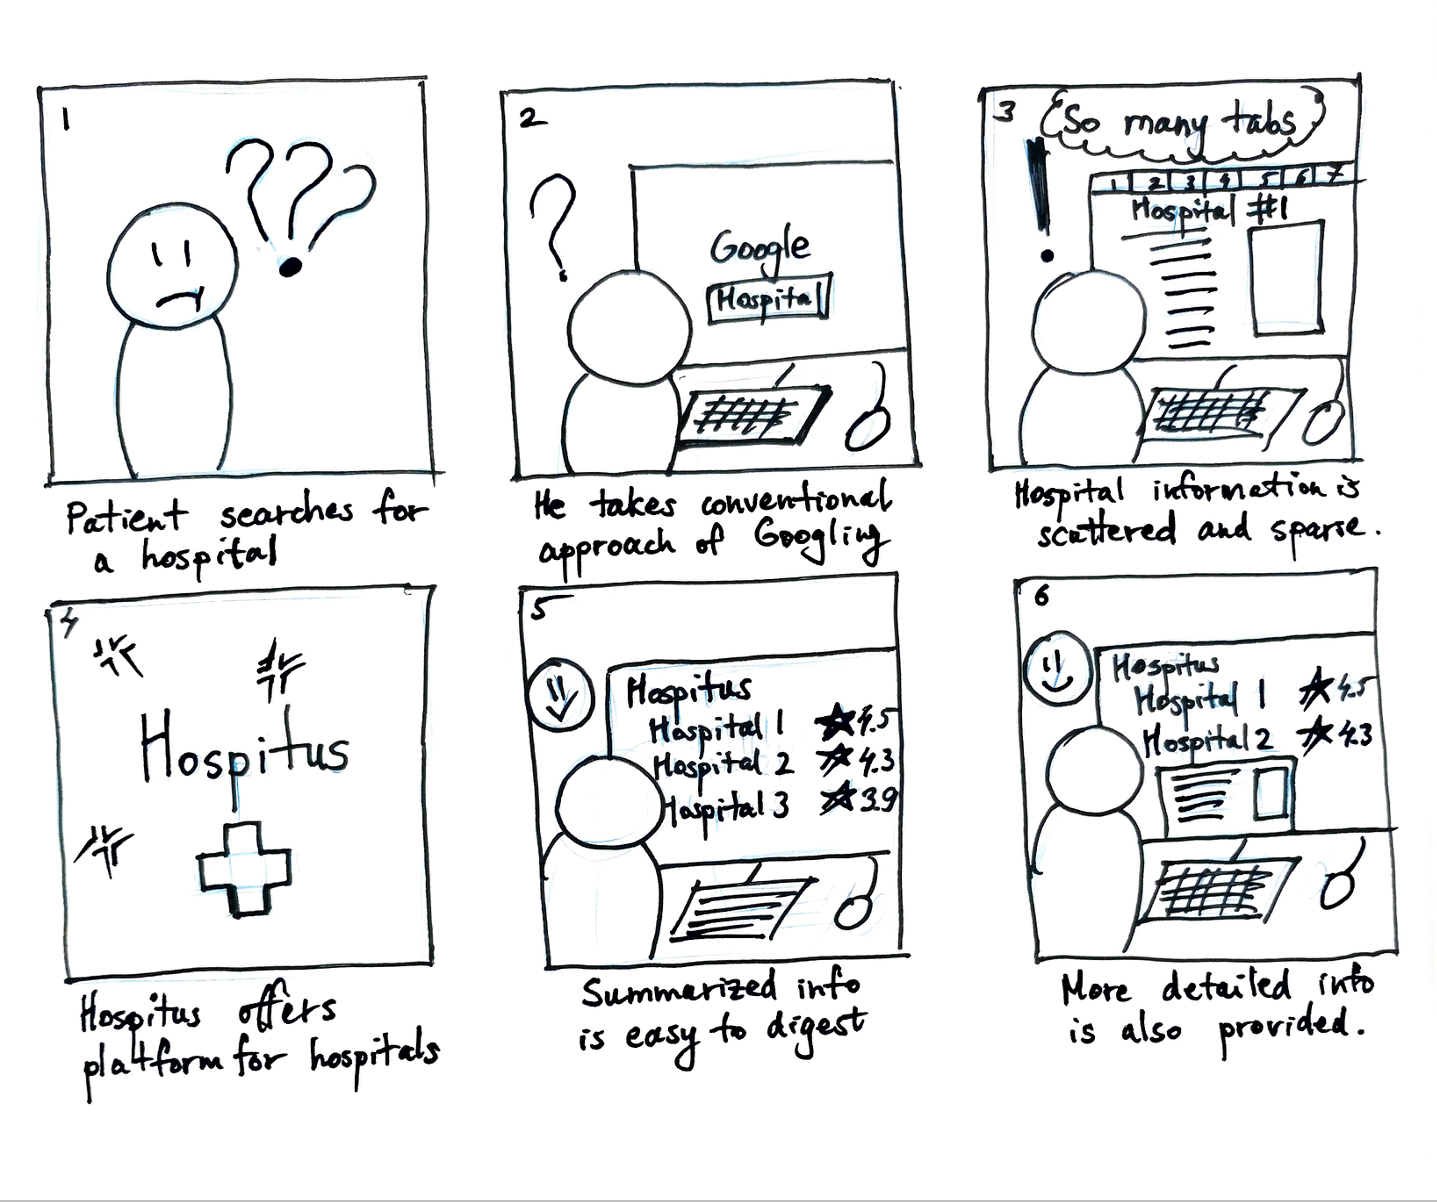 1
Patient searches for
a hospital
2
Google
Hospital
He takes conventional
approach of Googling
3
So many tabs
1 2 3 4 5 6 7
Hospital #1
Hospital information is
scattered and sparse.
4
Hospitus
Hospitus offers
platform for hospitals
5
Hospitus
Hospital 1 ★ 4.5
Hospital 2 ★ 4.3
Hospital 3 ★ 3.9
Summarized info
is easy to digest
6
Hospitus
Hospital 1 ★ 4.5
Hospital 2 ★ 4.3
More detailed info
is also provided.